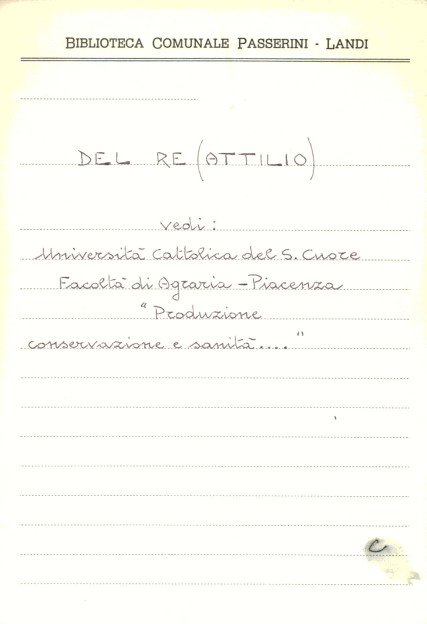 BIBLIOTECA COMUNALE PASSERINI - LANDI
DEL RE (ATTILIO)
vedi:
Università Cattolica del S. Cuore
Facoltà di Agraria - Piacenza
"Produzione
conservazione e sanità...."
C